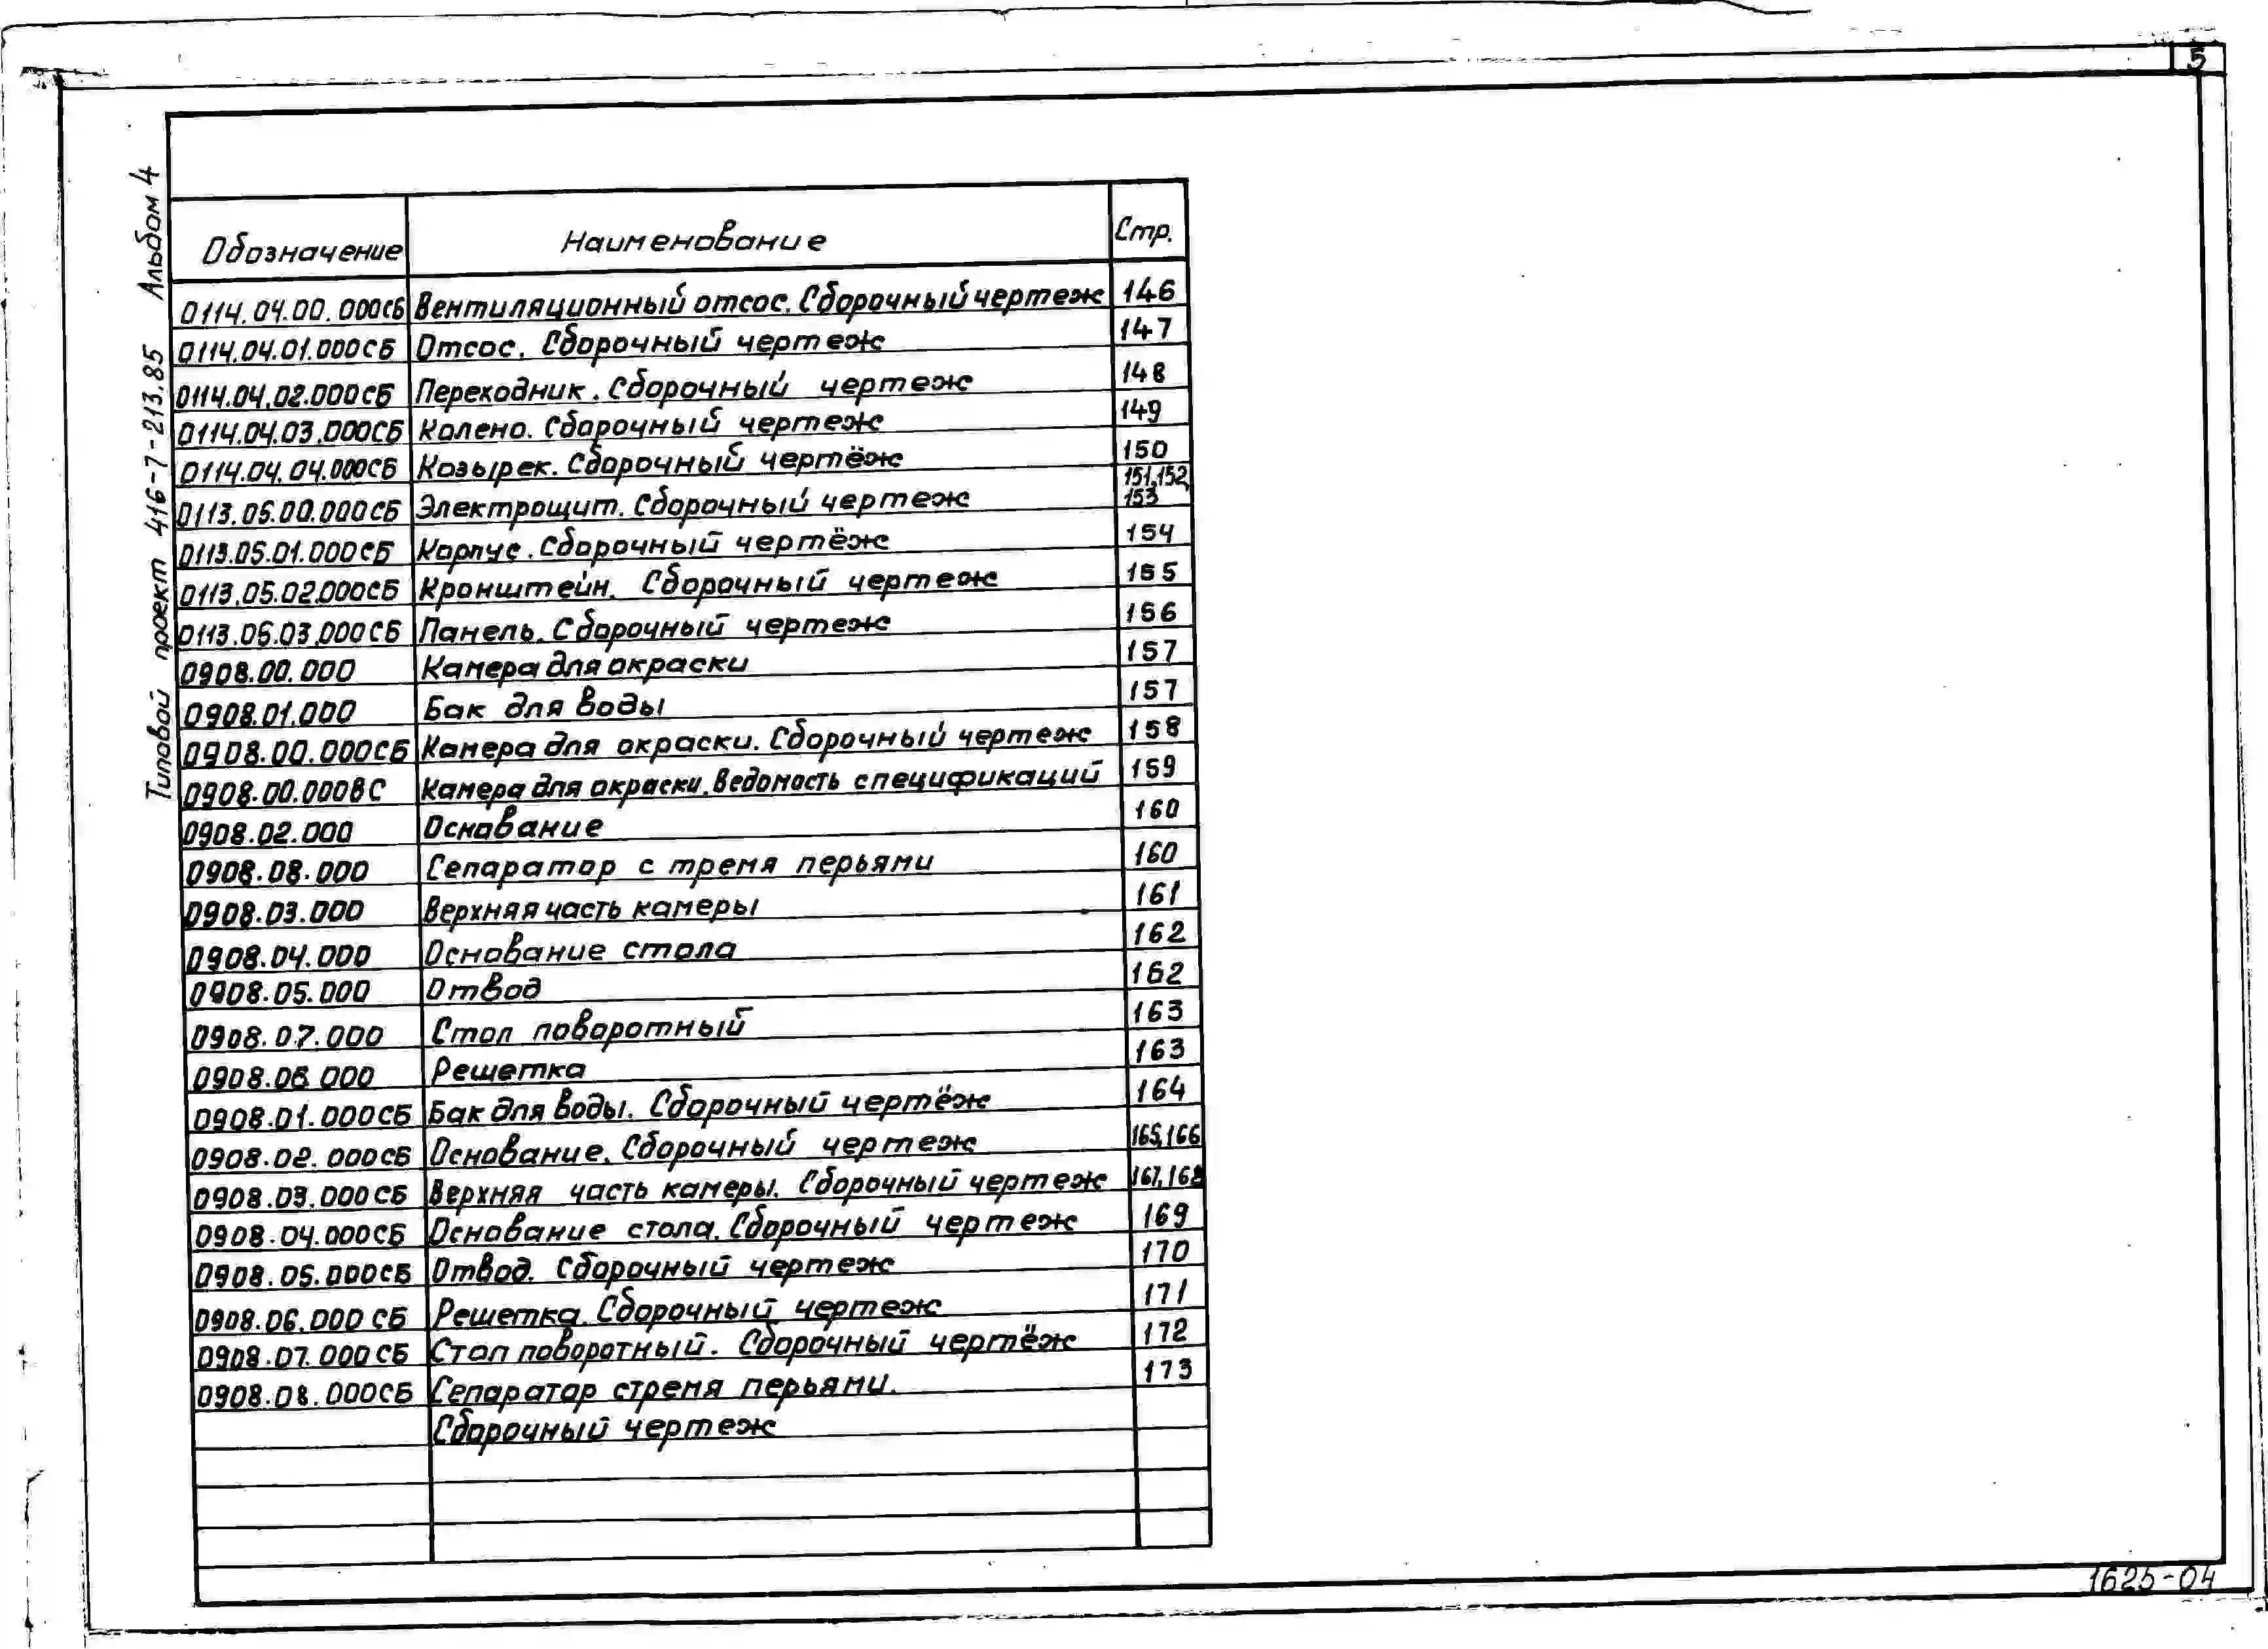 5
Типовой проект 416-7-213.85 Альбом 4
Обозначение Наименование Стр.
0114.04.00.000СБ Вентиляционный отсос. Сборочный чертеж 146
0114.04.01.000СБ Отсос. Сборочный чертеж 147
0114.04.02.000СБ Переходник. Сборочный чертеж 148
0114.04.03.000СБ Колено. Сборочный чертеж 149
0114.04.04.000СБ Козырек. Сборочный чертёж 150
0113.05.00.000СБ Электрощит. Сборочный чертеж 151,152,
153
0113.05.01.000СБ Корпус. Сборочный чертёж 154
0113.05.02.000СБ Кронштейн. Сборочный чертеж 155
0113.05.03.000СБ Панель. Сборочный чертеж 156
0908.00.000 Камера для окраски 157
0908.01.000 Бак для воды 157
0908.00.000СБ Камера для окраски. Сборочный чертеж 158
0908.00.000ВС Камера для окраски. Ведомость спецификаций 159
0908.02.000 Основание 160
0908.08.000 Сепаратор с тремя перьями 160
0908.03.000 Верхняя часть камеры 161
0908.04.000 Основание стола 162
0908.05.000 Отвод 162
0908.07.000 Стол поворотный 163
0908.06.000 Решетка 163
0908.01.000СБ Бак для воды. Сборочный чертёж 164
0908.02.000СБ Основание. Сборочный чертеж 165,166
0908.03.000СБ Верхняя часть камеры. Сборочный чертеж 167,168
0908.04.000СБ Основание стола. Сборочный чертеж 169
0908.05.000СБ Отвод. Сборочный чертеж 170
0908.06.000СБ Решетка. Сборочный чертеж 171
0908.07.000СБ Стол поворотный. Сборочный чертёж 172
0908.08.000СБ Сепаратор с тремя перьями. 173
Сборочный чертеж
1625-04